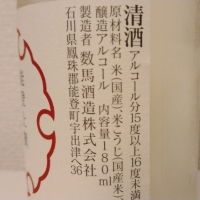 清酒 アルコール分15度以上16度未満
原材料名 米(国産)、米こうじ(国産米)、
醸造アルコール 内容量180ml
製造者 数馬酒造株式会社
石川県鳳珠郡能登町宇出津ヘ36